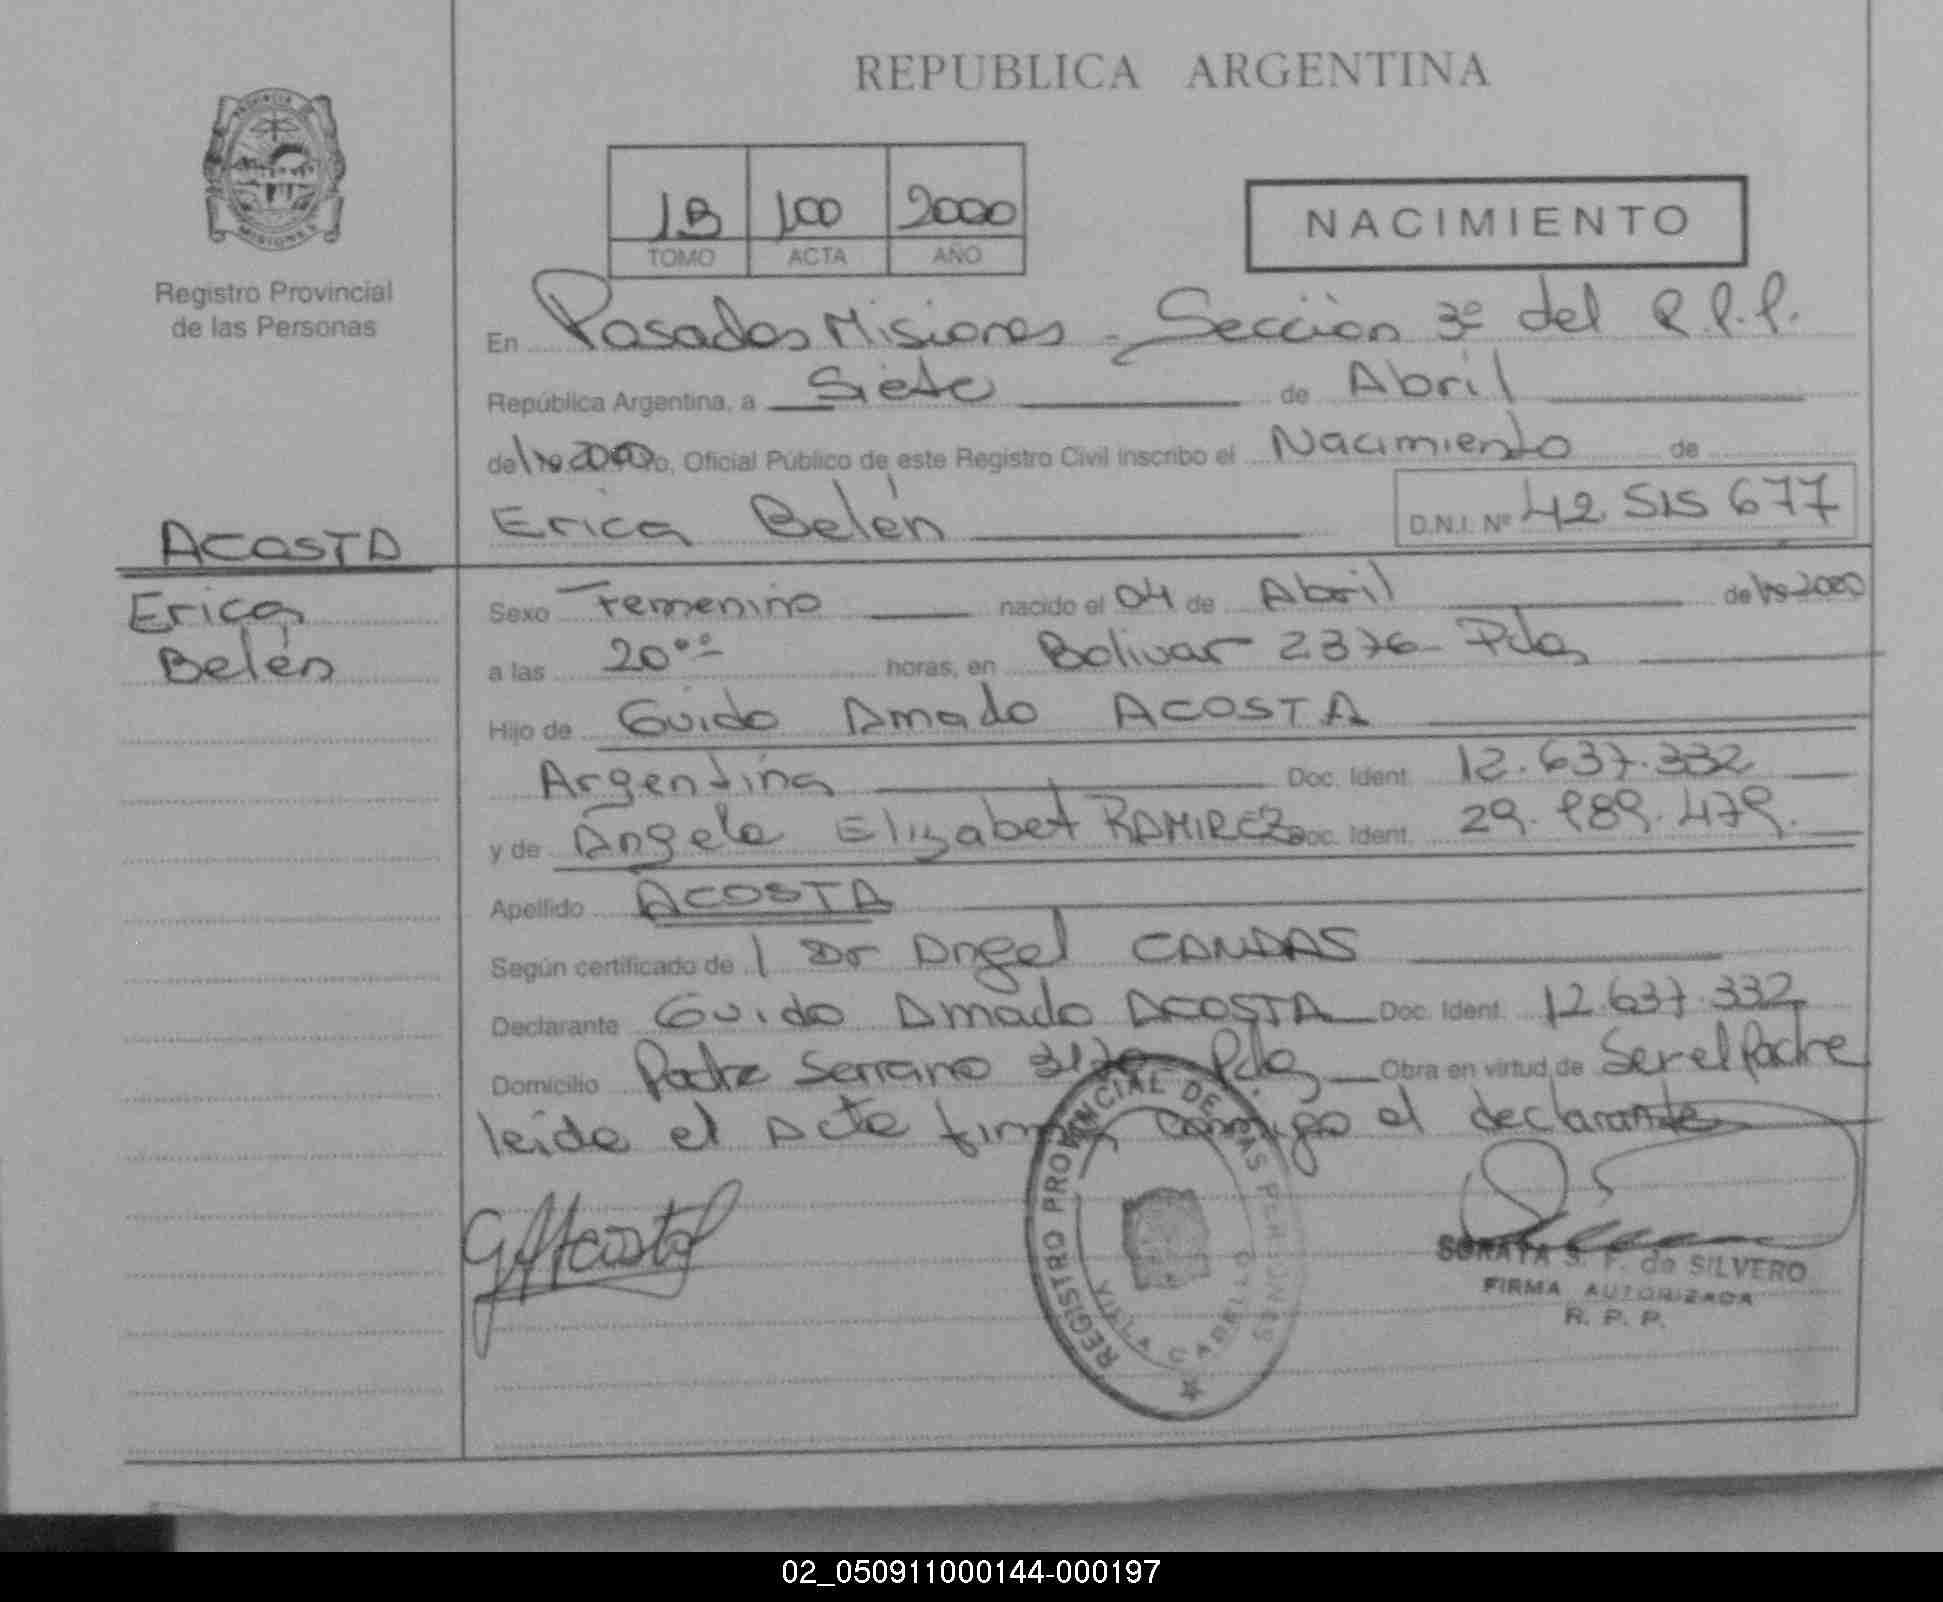 REPUBLICA ARGENTINA
PROVINCIA
MISIONES
Registro Provincial
de las Personas
1B 100 2000
TOMO ACTA AÑO
NACIMIENTO
En Posadas Misiones - Sección 3º del R.P.P.
República Argentina, a Siete de Abril
del 2000, Oficial Público de este Registro Civil inscribo el Nacimiento de
Erica Belén D.N.I. Nº 42 515 677
ACOSTA
Erica
Belén
Sexo Femenino nacido el 04 de Abril de 2000
a las 20⁰⁰ horas, en Bolivar 2376 - Pdas
Hijo de Guido Amado ACOSTA
Argentina Doc. Ident. 12.637.332
y de Angela Elizabet RAMIREZ Doc. Ident. 29. 989. 479.
Apellido ACOSTA
Según certificado de Dr Angel CANDAS
Declarante Guido Amado ACOSTA Doc. Ident. 12.637.332
Domicilio Padre Serrano Pdas Obra en virtud de Ser el Padre
leida el Acta firma conmigo el declarante
G A Acosta
REGISTRO PROVINCIAL DE LAS PERSONAS
VILLA CABELLO
SORAYA S. F. de SILVERO
FIRMA AUTORIZADA
R. P. P.
02_050911000144-000197